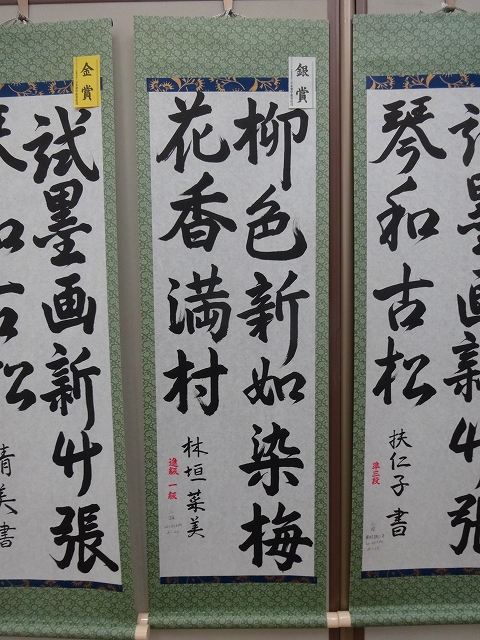 金賞
試墨画新竹張
和古松
清美書
銀賞
柳色新如染梅
花香満村
林垣菜美
進級 一級
試墨画新竹張
琴和古松
扶仁子書
準三段